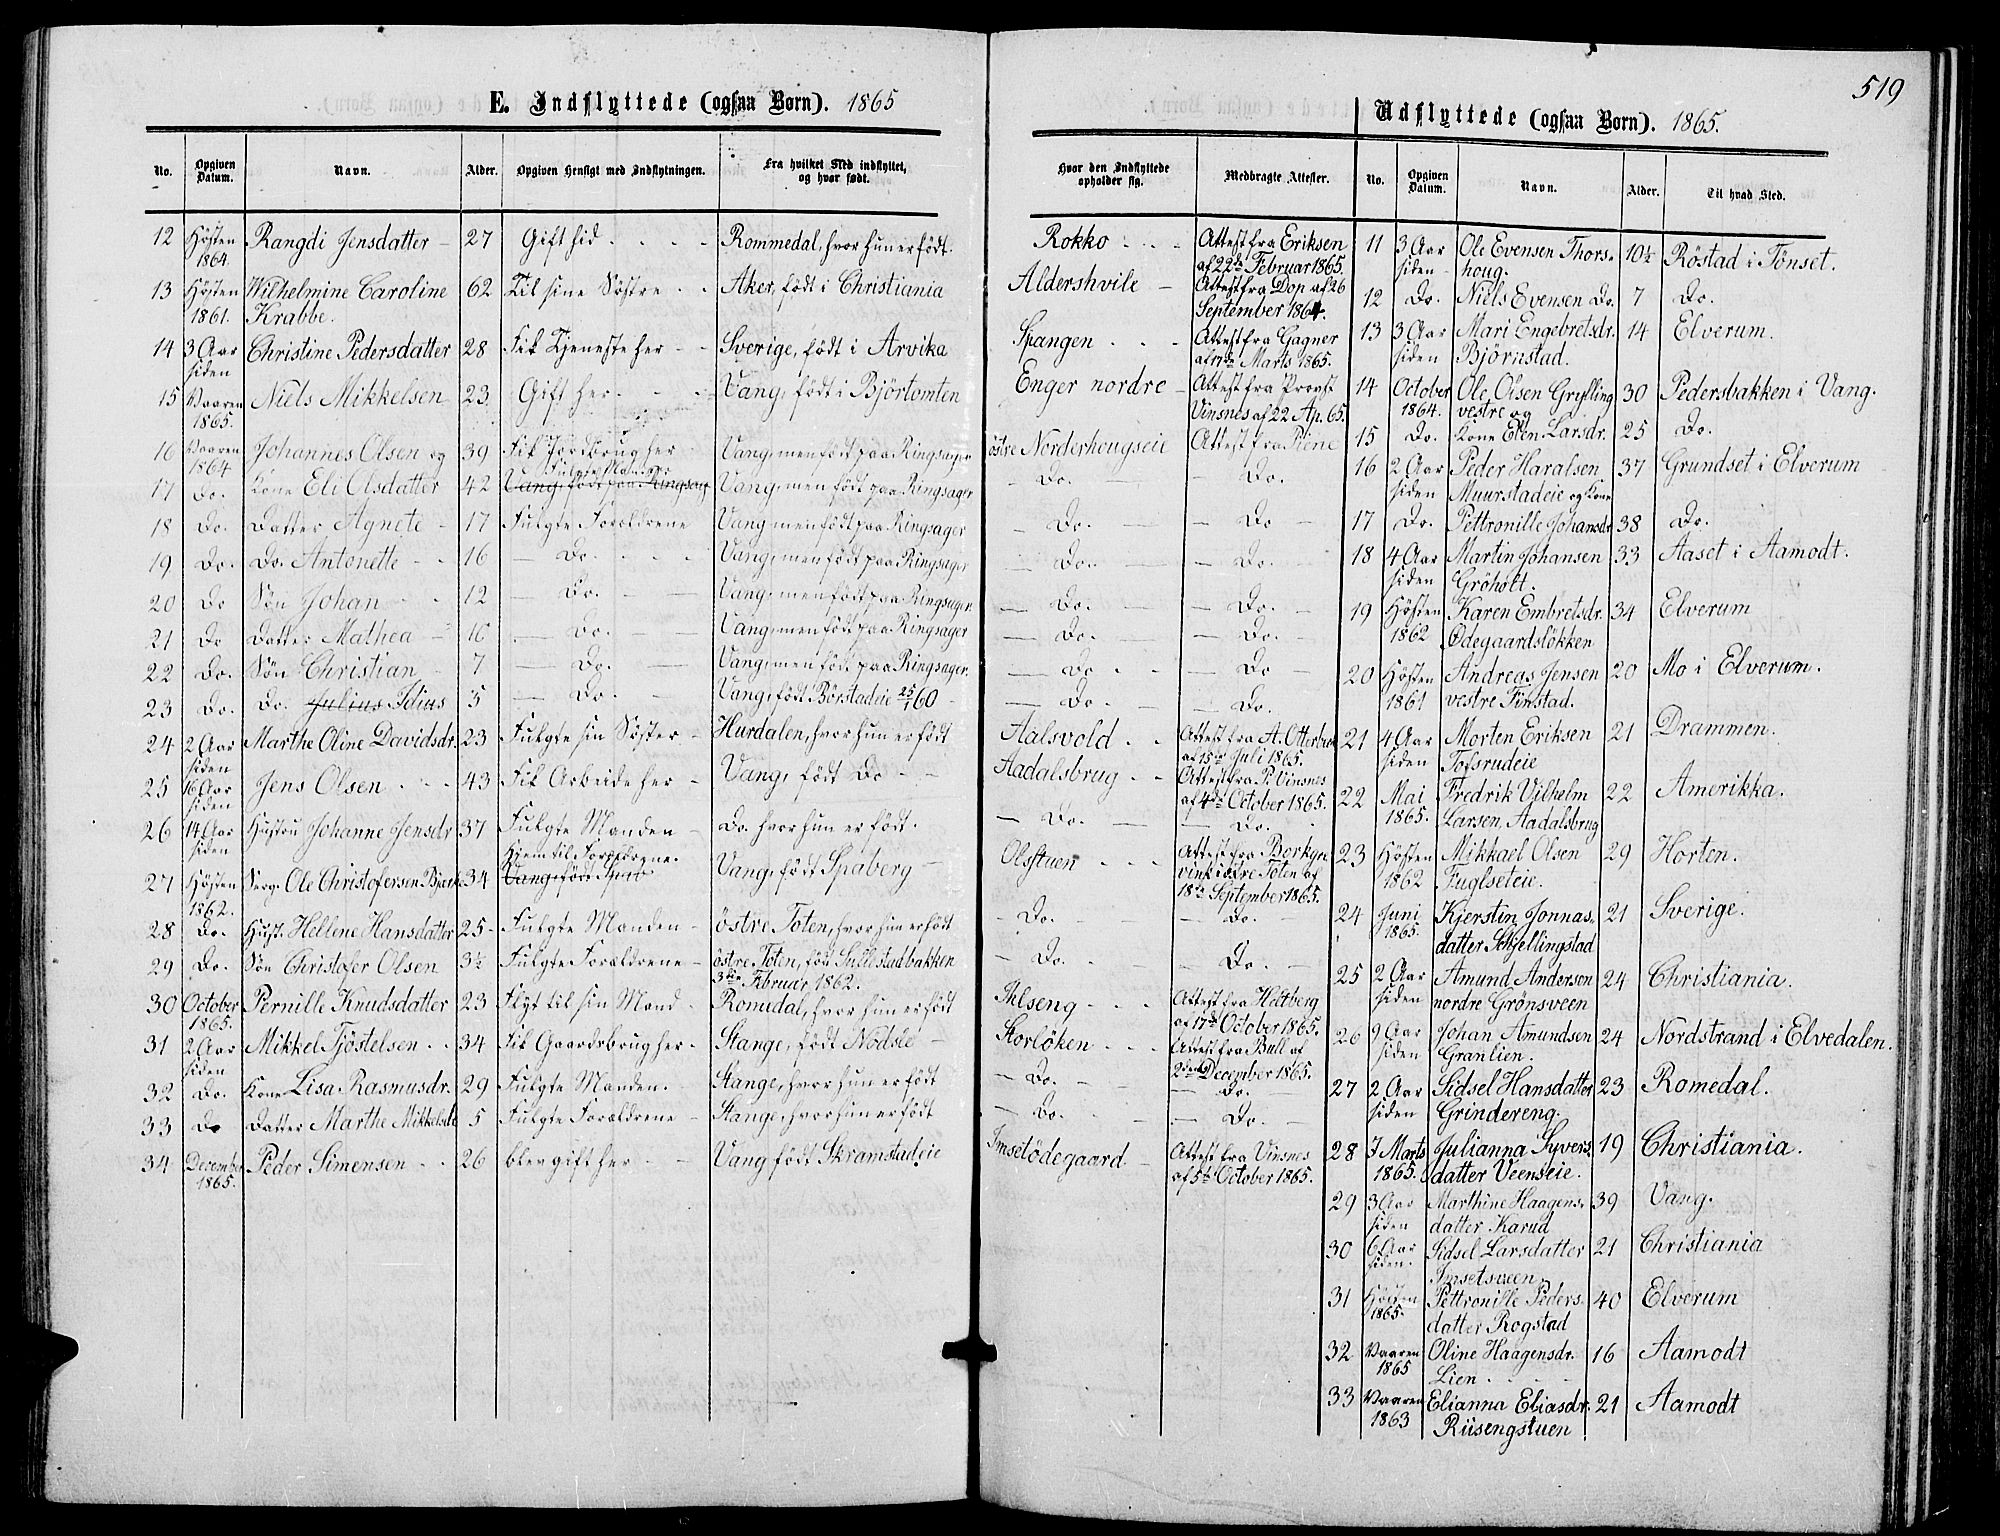 519
E. Indflyttede (ogsaa Børn). 1865
No. Opgiven Datum. Navn. Alder. Opgiven Hensigt med Indflytningen. Fra hvilket Sted indflyttet, og hvor født. Hvor den Indflyttede opholder sig. Medbragte Attester.
12 Høsten 1864. Rangdi Jensdatter 27 Gift hid Rommedal, hvor hun er født. Rokko Attest fra Eriksen af 22de Februar 1865.
13 Høsten 1861. Wilhelmine Caroline Krabbe. 62 Til sine Søstre Aker, født i Christiania Aldershvile Attest fra Dop af 26 September 1864.
14 3 Aar siden Christine Pedersdatter 28 Fik Tjeneste her Sverige, født i Arvika Spangen Attest fra Gagner Marts 1865.
15 Vaaren 1865. Niels Mikkelsen 23 Gift her Vang, født i Björtomten Enger nordre Attest fra Provst Vinsnes af 22 Ap. 65.
16 Vaaren 1864 Johannes Olsen og 39 Fik Jordbrug her Vang, men født paa Ringsager östre Norderhougseie Attest fra Piene
17 Do. Kone Eli Olsdatter 42 Fulgte Manden Vang, født paa Ringsag Vang, men født paa Ringsager Do. Do.
18 Do. Datter Agnete 17 Fulgte Forældrene Vang men født paa Ringsager Do. Do
19 Do. Do. Antonette 16 Do. Vang, men født paa Ringsager Do. Do.
20 Do Søn Johan 12 Do. Vang, men født paa Ringsager. Do. Do.
21 Do Datter Mathea 10 Do. Vang, men født paa Ringsager Do. Do.
22 Do. Søn Christian 7 Do. Vang, men født paa Ringsager. Do. Do
23 Do. Do. Julius Idius 5 Do. Vang, født i Börstadeie 25/1 60 Do. Do.
24 2 Aar siden Marthe Oline Davidsdr. 23 Fulgte sin Søster Hurdalen, hvor hun er født Aalsvold Attest fra A. Otterbech af 15de Juli 1865.
25 16 Aar siden Jens Olsen 43 Fik Arbeide her Vang, født Do Aadalsbrug Attest fra P. Vinsnes af 4de October 1865.
26 14 Aar siden Hustru Johanne Jensdr 37 Fulgte Manden Do. hvor hun er født. Do. Do.
27 Høsten 1862. Serg. Ole Christofersen Bjerke 34 Hjem til Forældrene. Vang, født Spab Vang, født Spaberg Olsstuen Attest fra Borkgre vink i østre Toten af 18de September 1865.
28 Do. Hust. Hellene Hansdatter 25 Fulgte Manden östre Toten, hvor hun er født Do. Do.
29 Do. Søn Christofer Olsen 3½ Fulgte Forældrene östre Toten, født Sullestadbakken 3die Februar 1862. Do. Do.
30 October 1865. Pernille Knudsdatter 23 Flyt til sin Mand Romedal, hvor hun er født Ihlseng Attest fra Heltberg af 17de October 1865.
31 2 Aar siden Mikkel Tjöstelsen 34 Fik Gaardsbrug her Stange, født Nodsle Storlöken Attest fra Bull af 2den December 1865.
32 Do. Kone Lisa Rasmusdr. 29 Fulgte Manden. Stange, hvor hun er født Do. Do.
33 Do Datter Marthe Mikkelsdr 5 Fulgte Forældrene Stange, hvor hun er født Do. Do.
34 December 1865. Peder Simensen 26 blev gift her Vang født Skramstadeie Imsetödegaard Attest fra Vinsnes af 5te October 1865.
Udflyttede (ogsaa Børn). 1865.
No. Opgiven Datum. Navn. Alder. Til hvad Sted.
11 3 Aar siden Ole Evensen Thorshoug. 10½ Röstad i Tönset.
12 Do. Niels Evensen Do. 7 Do.
13 3 Aar siden Mari Engebretsdr. Björnstad. 14 Elverum.
14 October 1864. Ole Olsen Grylling vestre og 30 Pedersbakken i Vang.
15 Do. Kone Elen Larsdr. 25 Do.
16 2 Aar siden Peder Haralsen Muurstadeie og Kone 37 Grundset i Elverum
17 Do. Pettronille Johansdr 38 Do.
18 4 Aar siden Martin Johansen Gröholt. 33 Aaset i Aamodt.
19 Høsten 1862 Karen Embretsdr. Ödegaardslökken 34 Elverum
20 Høsten 1861 Andreas Jensen vestre Finstad. 20 Mo i Elverum.
21 4 Aar siden Morten Eriksen Tofsrudeie 21 Drammen.
22 Mai 1865. Fredrik Vilhelm Larsen, Aadalsbrug 22 Amerikka.
23 Høsten 1862 Mikkael Olsen Fuglseteie. 29 Horten.
24 Juni 1865. Kjerstin Jonnasdatter Skjellingstad 21 Sverige.
25 2 Aar siden Amund Andersen nordre Grönsveen 24 Christiania.
26 9 Aar siden Johan Amundsen Granlien. 24 Nordstrand i Elvedalen.
27 2 Aar siden Sidsel Hansdatter Grindereng. 23 Romedal.
28 7 Marts 1865. Julianna Syversdatter Veenseie. 19 Christiania.
29 3 Aar siden Marthine Haagensdatter Karud 39 Vang.
30 6 Aar siden. Sidsel Larsdatter Imsetsveen 21 Christiania
31 Høsten 1865. Pettronille Pedersdatter Rogstad 40 Elverum
32 Vaaren 1865 Oline Haagensdr. Lien 16 Aamodt
33 Vaaren 1863 Elianna Eliasdr. Riisengstuen 21 Aamodt